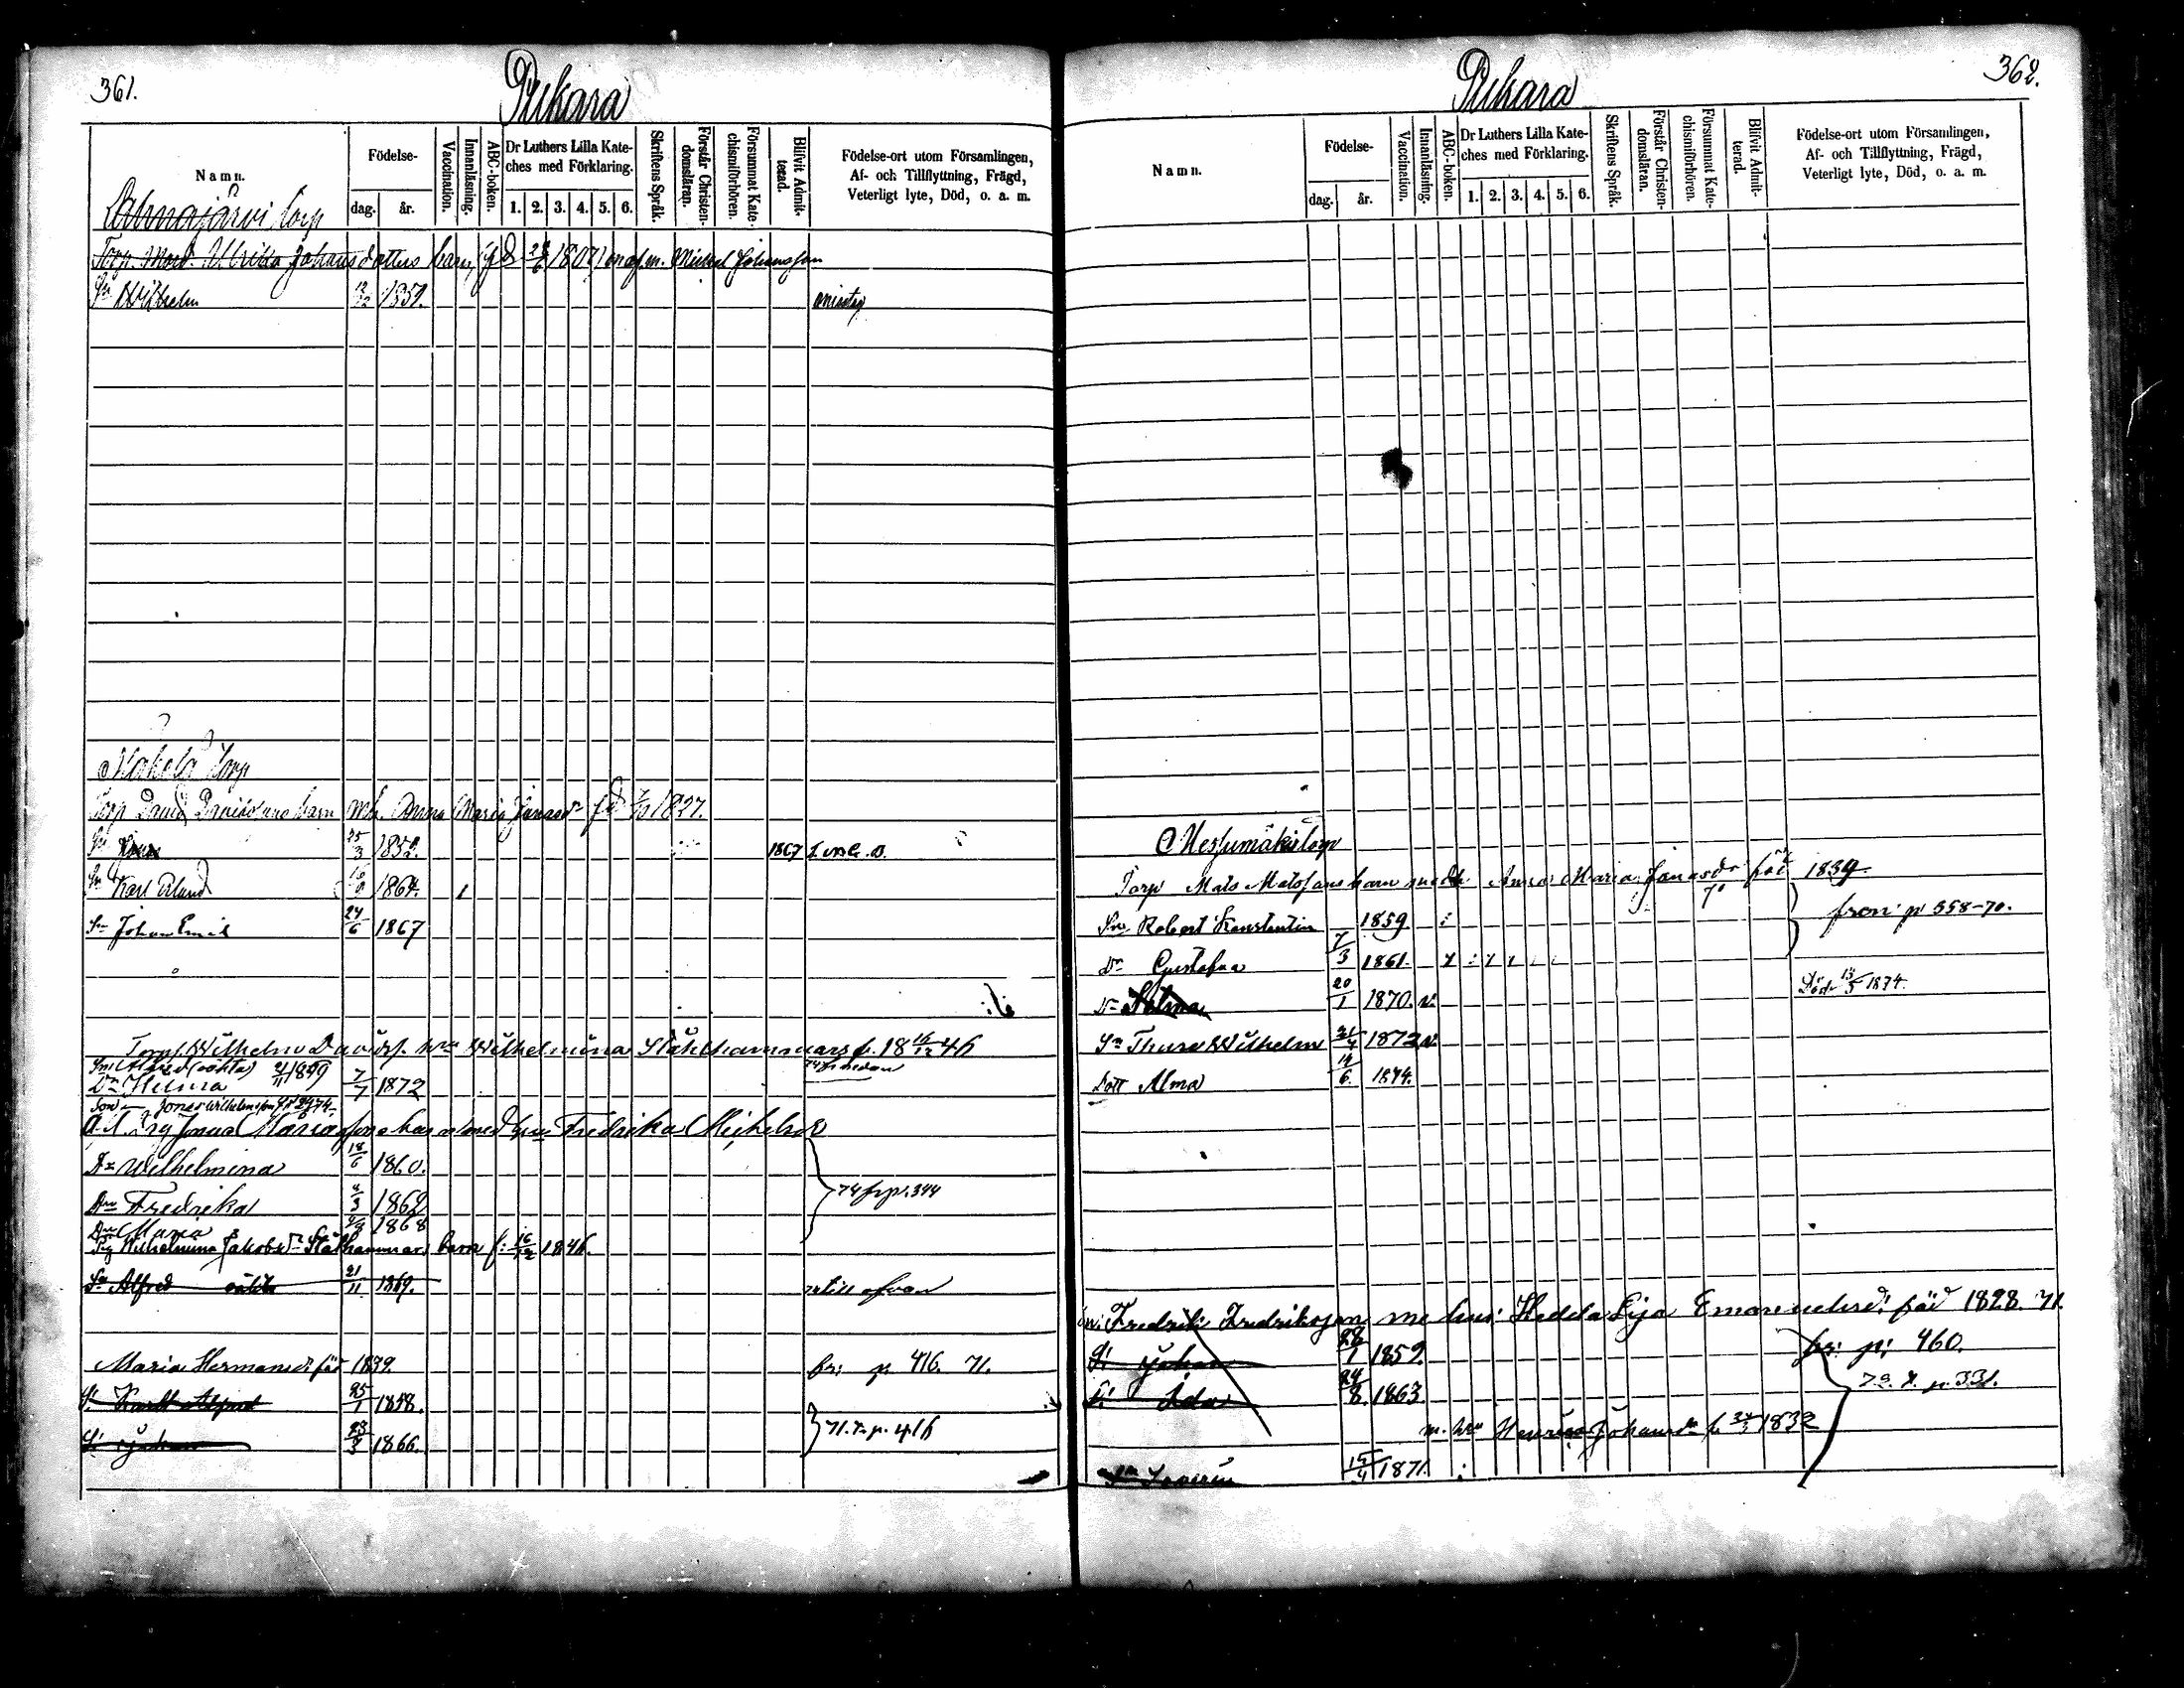 361.
Pukara
Namn.
Födelse-
dag.
år.
Vaccination.
Innanläsning.
ABC-boken.
Dr Luthers Lilla Kate-
ches med Förklaring.
1. 2. 3. 4. 5. 6.
Skriftens Språk.
Förstår Christen-
domsläran.
Försummat Kate-
chismiförhören.
Blifvit Admit-
terad.
Födelse-ort utom Församlingen,
Af- och Tillflyttning, Frägd,
Veterligt lyte, Död, o. a. m.
Lahnajärvi torp
Torp. Mord. Ulrika Johansdotters barn, fd 1807 m. Michel Johansson
Sn Wilhelm 1851.
Mäkelä Torp
Torp David Davidssons barn m. h. Anna Maria Jonasdr fd 1827.
Sn 25/3 1852. 1867
Sn Karl Erland 1864. 1
Sn Johan Emil 24/6 1867
Torp. Wilhelm Davidss. hru Wilhelmina Stålhammars f. 18 16/12 46
Sn Alfred (oäkta) 21/11 1869
Dr Helena 7/7 1872
Son Jonas Wilhelmsson
Jonas Mariassons barn med hru Fredrika Michelsdr
Dr Wilhelmina 18/6 1860.
Dr Fredrika 4/3 1862
74 fr p. 344
Dr Maria 1868
Pig Wilhelmina Jakobsdr Stålhammars barn f. 16/12 1846.
Sn Alfred oäkta 21/11 1869. till ofvan
Maria Hermansdr föd 1839. fr: p. 416. 71.
S: Karl Alfred 25/1 1858.
S: Johan 23/3 1866.
71. T. p. 416
362.
Pukara
Namn.
Födelse-
dag.
år.
Vaccination.
Innanläsning.
ABC-boken.
Dr Luthers Lilla Kate-
ches med Förklaring.
1. 2. 3. 4. 5. 6.
Skriftens Språk.
Förstår Christen-
domsläran.
Försummat Kate-
chismiförhören.
Blifvit Admit-
terad.
Födelse-ort utom Församlingen,
Af- och Tillflyttning, Frägd,
Veterligt lyte, Död, o. a. m.
Messumäki torp
Torp Mats Matssons barn med h Anna Maria Jonasdr föd 1839
Sn Robert Konstantin 1859.
från p 358-70.
Dr Gustafva 7/3 1861.
Dr Selma 20/1 1870. v. Död 13/5 1874.
Sn Thure Wilhelm 1872 v.
Dott Alma 14/6. 1874.
Fredrik Fredriksson me hus: Hedda Lisa Emanuelsd: föd 1828. 71.
S: Johan 28/1 1859. fr: p: 460.
D: Ida 24/8 1863. p. 331.
m. hru Henrica Johansdr f. 1832
Sn Severin 15/4 1871.